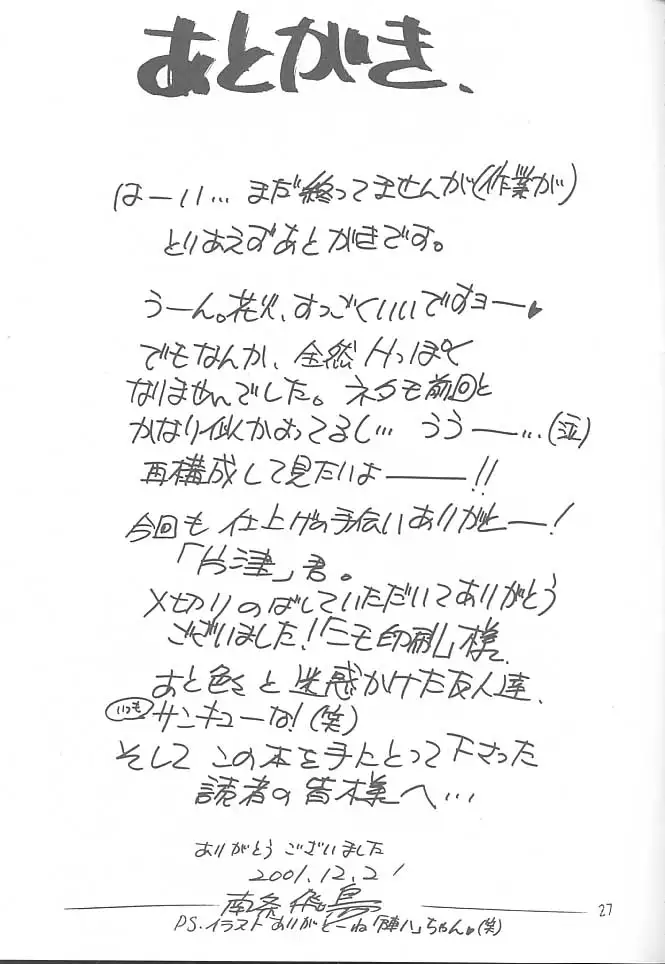 あとがき、
はーい…まだ終ってませんが(作業が)
とりあえずあとがきです。
うーん。花火、すっごくいいですョー♥
でもなんか、全然Hっぽく
なりませんでした。ネタも前回と
かなり似かよってるし…うぅー…(泣)
再構成して見たいよ――!!
今回も仕上げの手伝いありがとー!
「片津」君。
〆切りのばしていただいてありがとう
ございました!「ニモ印刷」様。
あと色々と迷惑かけた友人達、
いつもサンキューな!(笑)
そしてこの本を手にとって下さった
読者の皆様へ…
ありがとうございました
2001.12.21
南条飛鳥
27
PS.イラストありがとーね「陣八」ちゃん♥(笑)